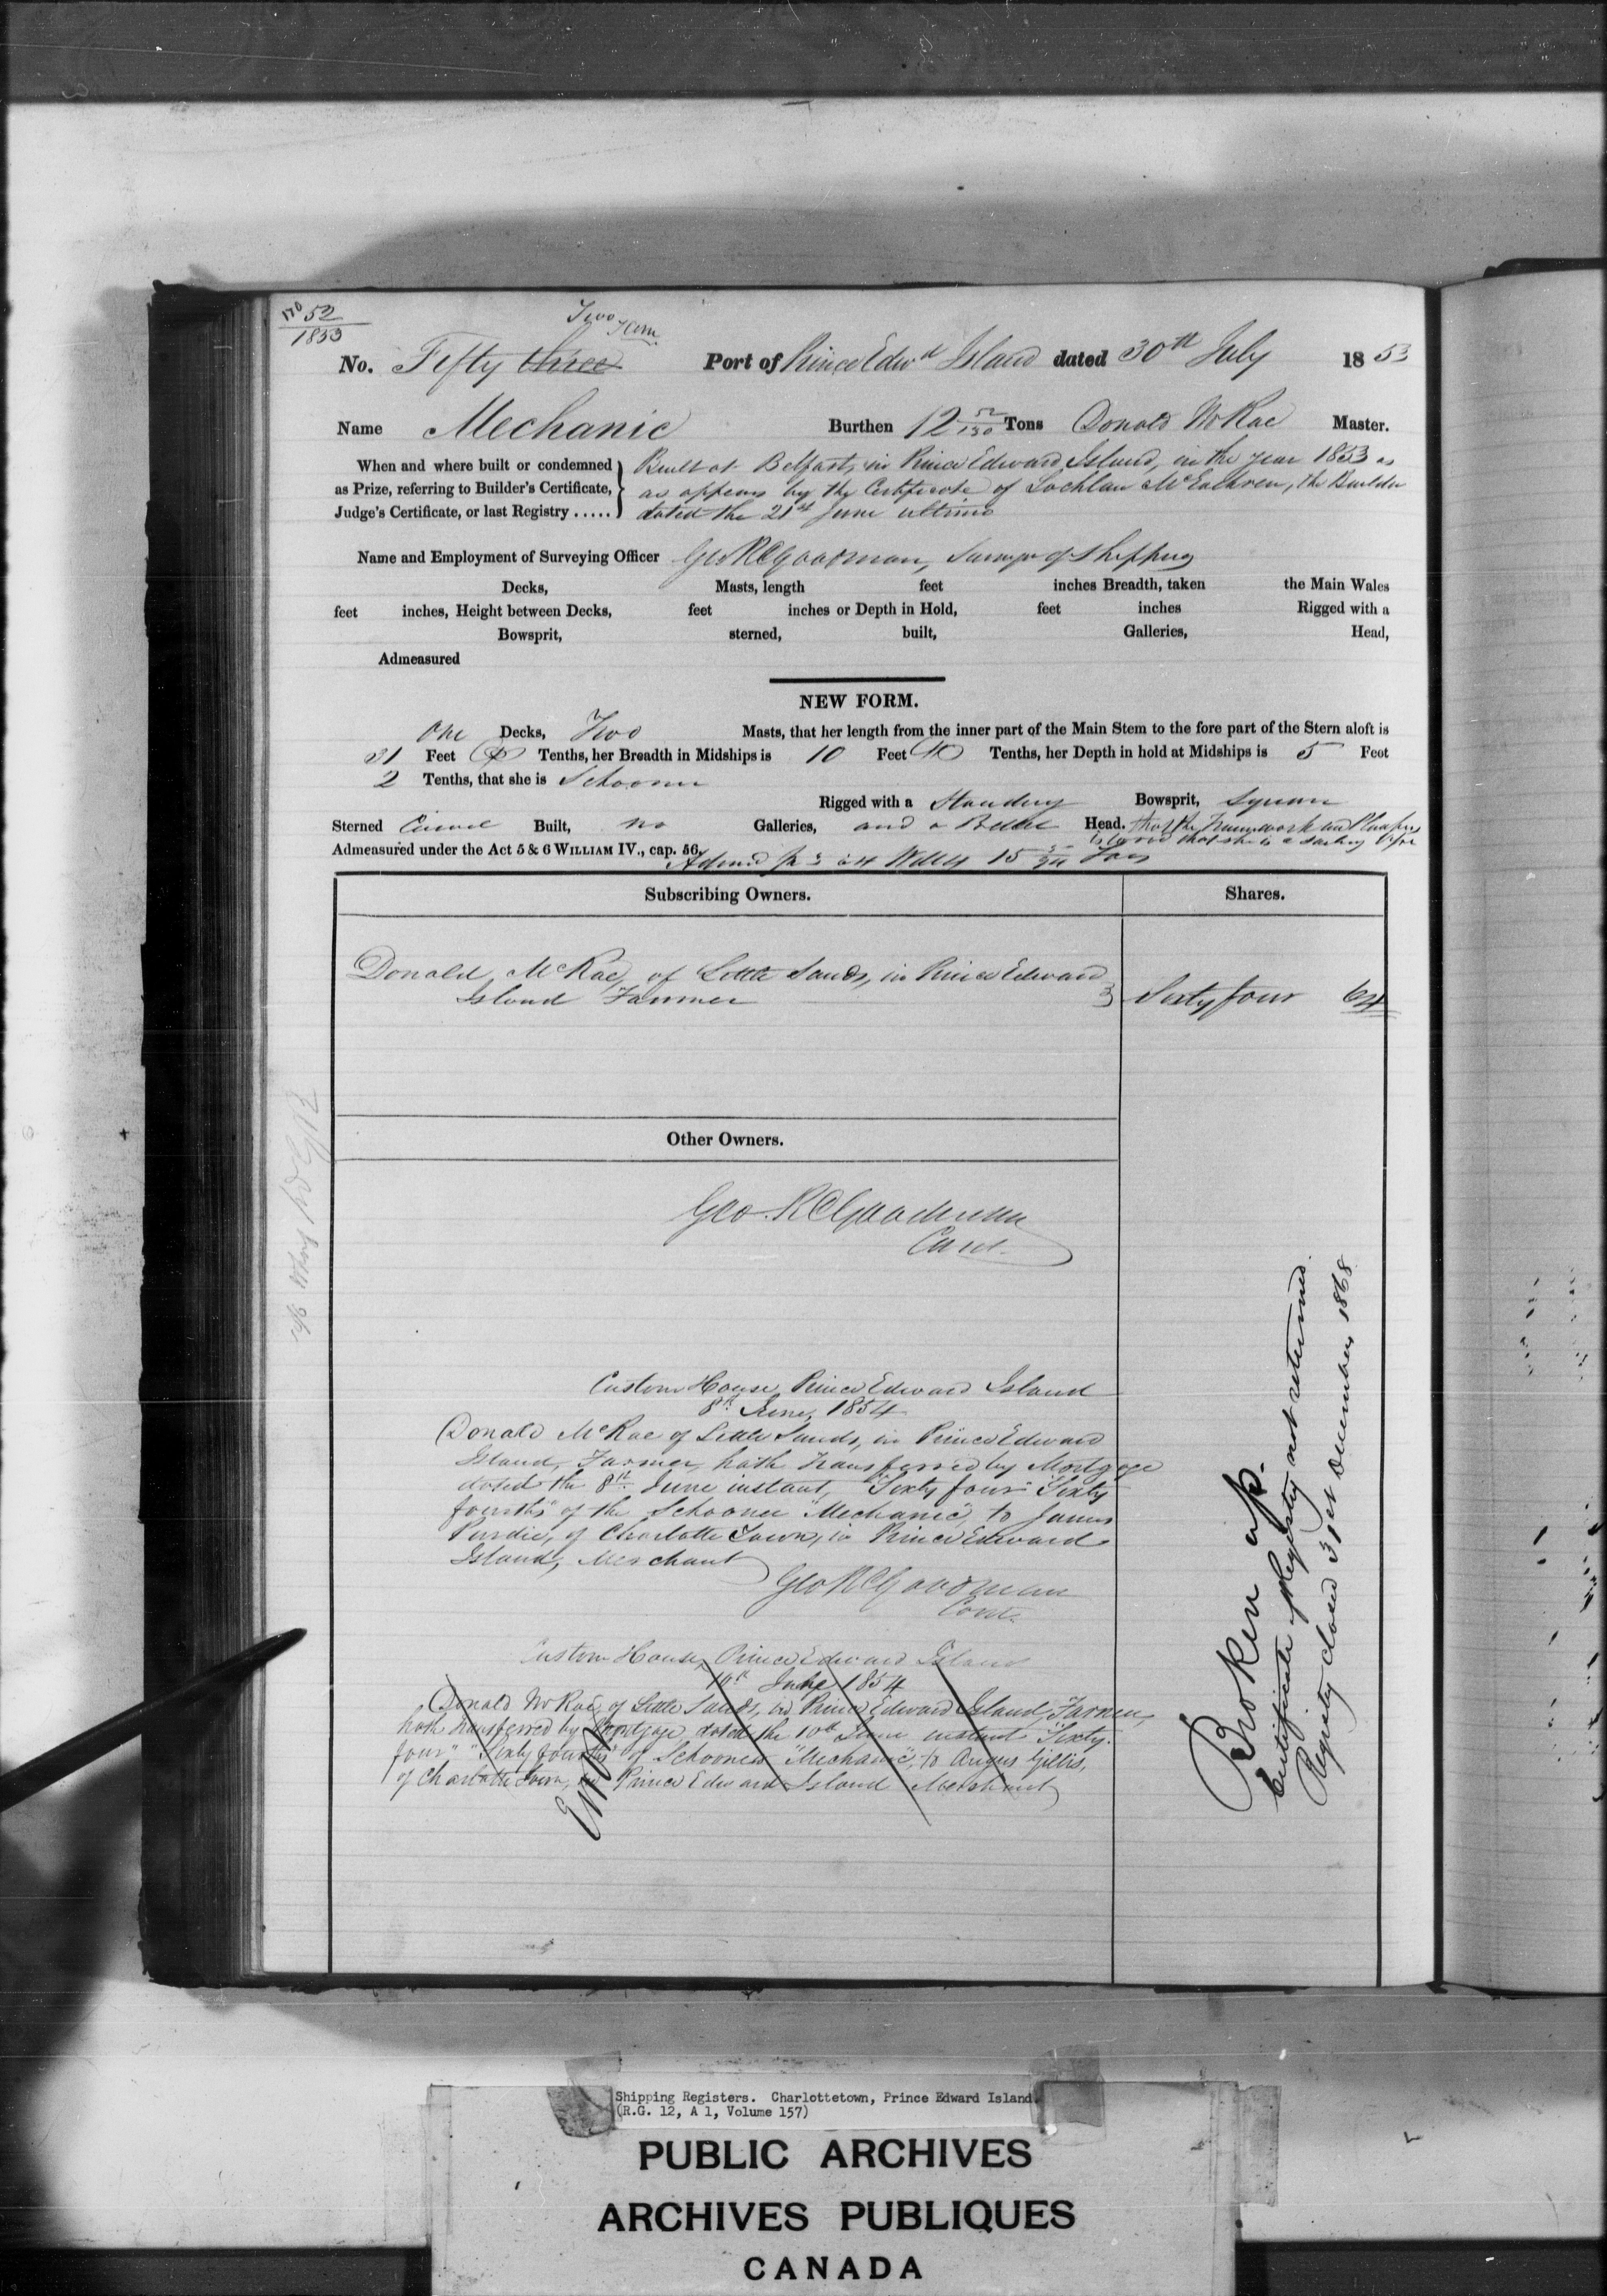 No 52
1853
Two
No. Fifty three Port of Prince Edwd Island dated 30th July 1853
Name Mechanic Burthen 12 52/130 Tons Donald McRae Master.
When and where built or condemned Built at Belfast, in Prince Edward Island, in the year 1853 as
as Prize, referring to Builder's Certificate, as appears by the Certificate of Lochlan McEachren, the Builder
Judge's Certificate, or last Registry ..... dated the 21st June ultimo
Name and Employment of Surveying Officer Geo R C Goodman, Surveyor of Shipping
Decks, Masts, length feet inches Breadth, taken the Main Wales
feet inches, Height between Decks, feet inches or Depth in Hold, feet inches Rigged with a
Bowsprit, sterned, built, Galleries, Head,
Admeasured
NEW FORM.
One Decks, Two Masts, that her length from the inner part of the Main Stem to the fore part of the Stern aloft is
31 Feet Tenths, her Breadth in Midships is 10 Feet Tenths, her Depth in hold at Midships is 5 Feet
2 Tenths, that she is Schooner
Rigged with a Standing Bowsprit, Square
Sterned Carvel Built, no Galleries, and a Billet Head. that the Framework and Planking
is wood that she is a sailing
Admeasured under the Act 5 & 6 WILLIAM IV., cap. 56.
Tons
Subscribing Owners. Shares.
Donald McRae, of Little Sands, in Prince Edward
Island Farmer Sixty four 64
Other Owners.
Geo. R C Goodman
Cont.
Custom House, Prince Edward Island
8th June, 1854
Donald McRae of Little Sands, in Prince Edward
Island, Farmer, hath transferred by Mortgage
dated the 8th June instant, "Sixty four" "Sixty
fourths" of the Schooner "Mechanic", to James
Purdie, of Charlotte Town, in Prince Edward
Island, Merchant
Geo R C Goodman
Cont.
Custom House, Prince Edward Island
10th June 1854
Donald McRae, of Little Sands, in Prince Edward Island, Farmer,
hath transferred by Mortgage dated the 10th June instant "Sixty
four" "Sixty fourths" of Schooner "Mechanic", to Angus Gillis,
of Charlotte Town, in Prince Edward Island Merchant
Error
Broken up.
Certificate of Registry not returned.
Registry closed 31st December, 1868
Shipping Registers. Charlottetown, Prince Edward Island.
(R.G. 12, A 1, Volume 157)
PUBLIC ARCHIVES
ARCHIVES PUBLIQUES
CANADA